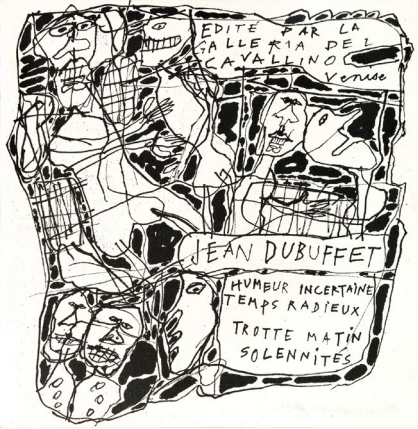 EDITE PAR LA
GALLERIA DEL
CAVALLINO
Venise
JEAN DUBUFFET
HUMEUR INCERTAINE
TEMPS RADIEUX
TROTTE MATIN
SOLENNITÉS